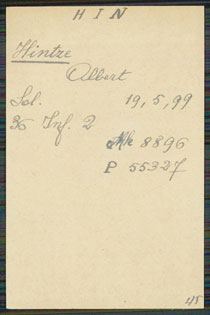 HIN
Hintze
Albert
Sol. 19, 5, 99
36 Inf. 2
Mk 8896
P 55327
45